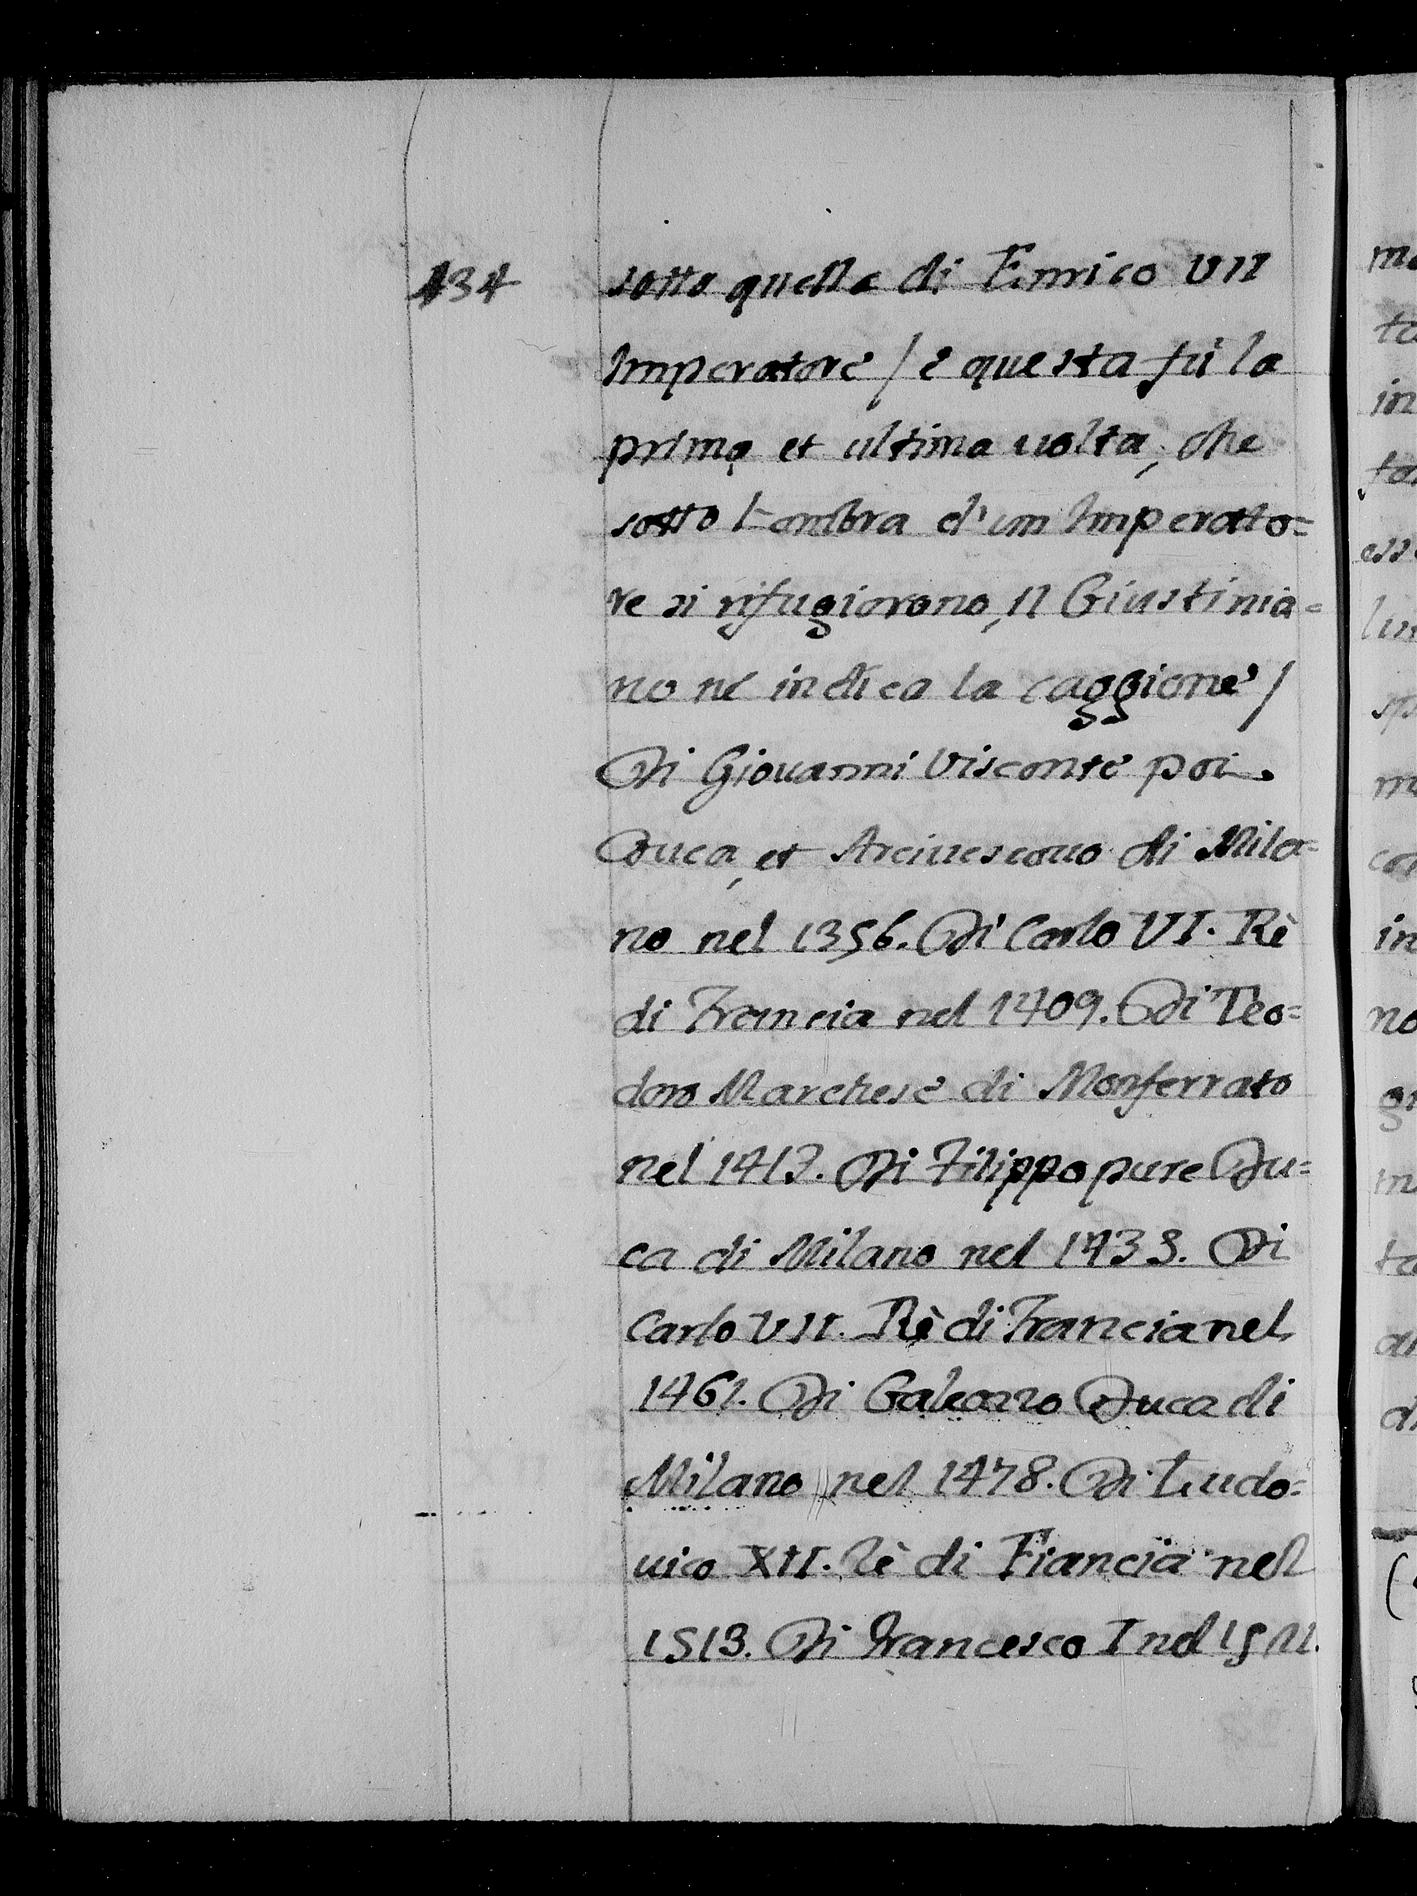 434
sotto quella di Enrico VII
Imperatore / e questa fù la
prima et ultima uolta, che
sotto l'ombra d'un Imperatto=
re si rifugiorono, Il Giustinia=
no né indica la caggione /
Di Giouanni Visconte poi
Duca, et Arciuescouo di Mila=
no nel 1356. Di Carlo VI. Rè
di Francia nel 1409. Di Teo=
doro Marchese di Monferrato
nel 1413. Di Filippo pure Du=
ca di Milano nel 1433. Di
Carlo VII. Rè di Francia nel
1461. Di Galeazzo Duca di
Milano nel 1478. Di Ludo=
uico XII. Rè di Francia nel
1513. Di Francesco I nel